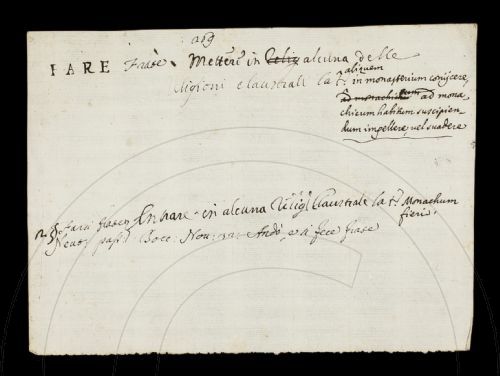 209
FARE Frate. Mettere in Relig alcuna delle
Religioni claustrali lat. aliquem
in monasterium conijcere,
ad monachicum ad mona
chicum habitum suscipien
dum impellere vel suadere
§. Farsi frate Entrare in alcuna Relig. Claustrale lat. Monachum
fieri.
Neut. pass. Bocc. Nov. Andò, e si fece frate